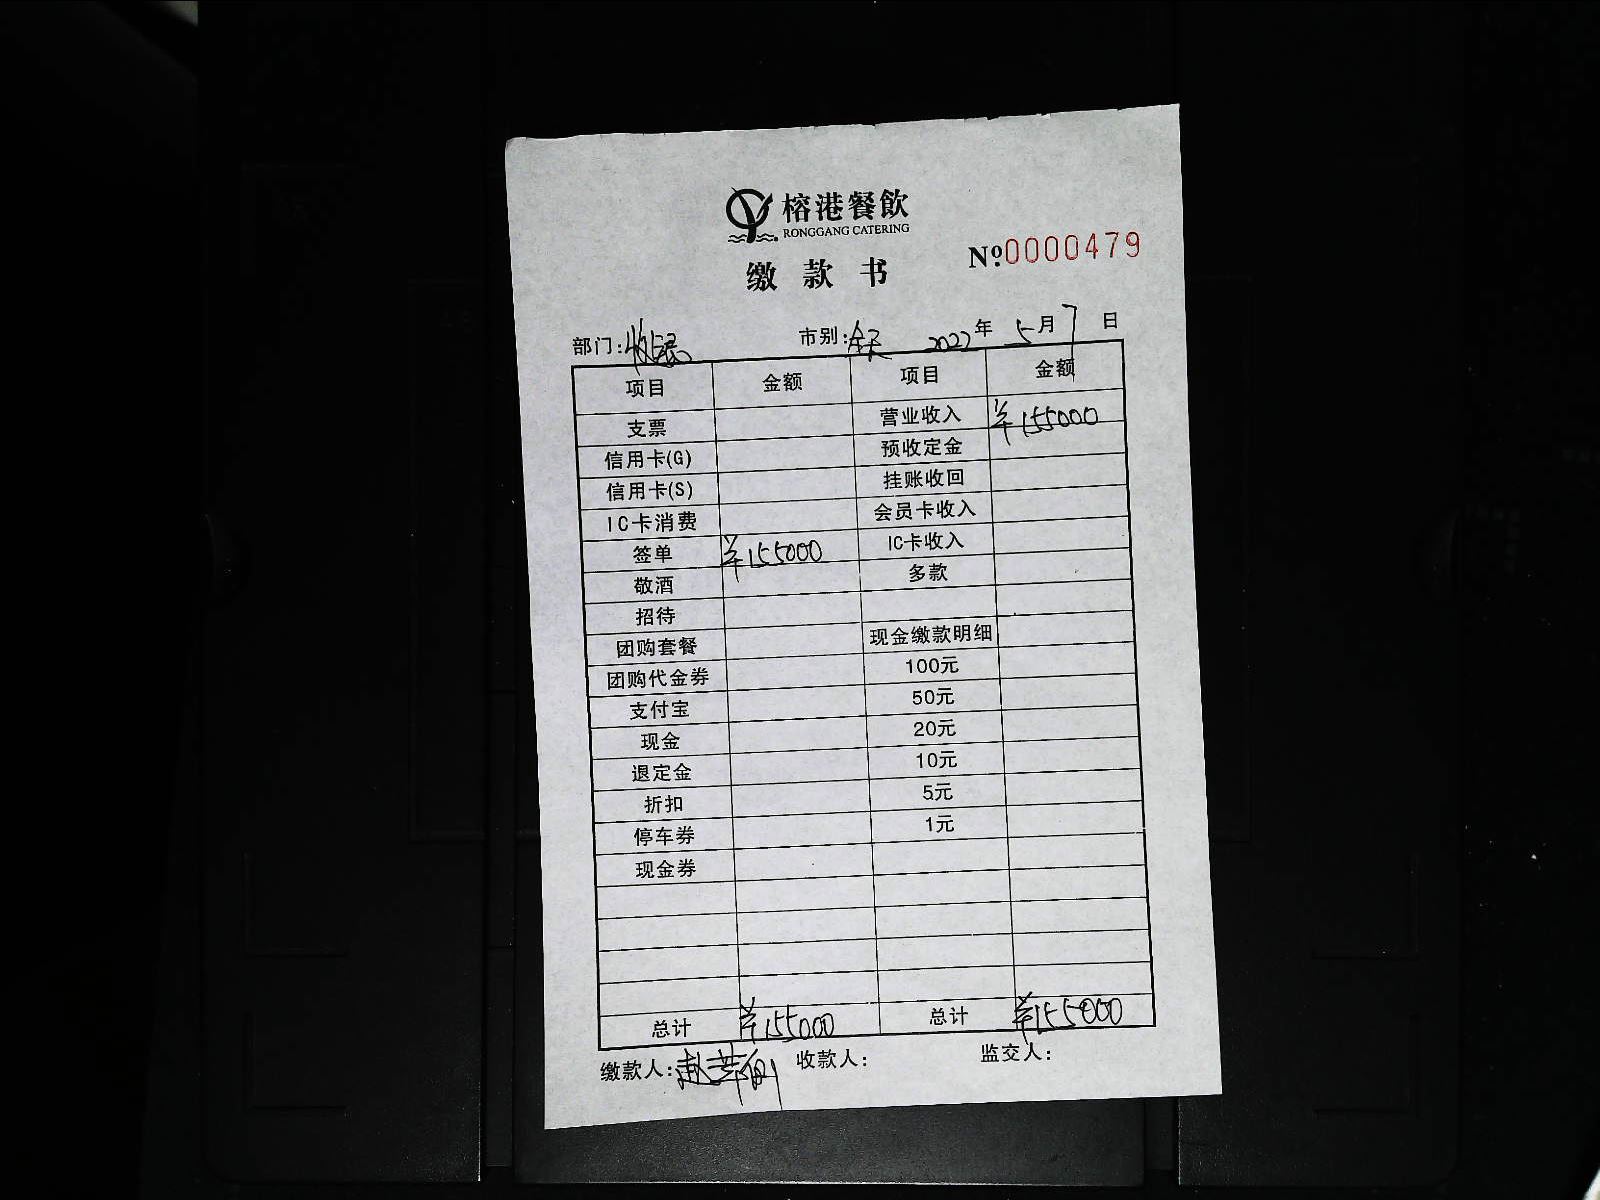 榕港餐飲
RONGGANG CATERING
缴款书
№:0000479
部门: 市别:全天 2022年5月7日
项目 金额 项目 金额
支票 营业收入 ¥155000
信用卡(G) 预收定金
信用卡(S) 挂账收回
IC卡消费 会员卡收入
签单 ¥155000 IC卡收入
敬酒 多款
招待
团购套餐 现金缴款明细
团购代金券 100元
支付宝 50元
现金 20元
退定金 10元
折扣 5元
停车券 1元
现金券
总计 ¥155000 总计 ¥155000
缴款人: 收款人: 监交人: